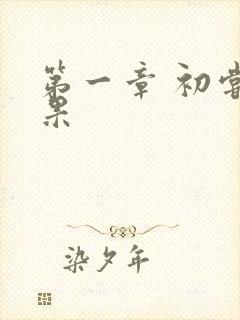 第一章 初尝
果
染夕年